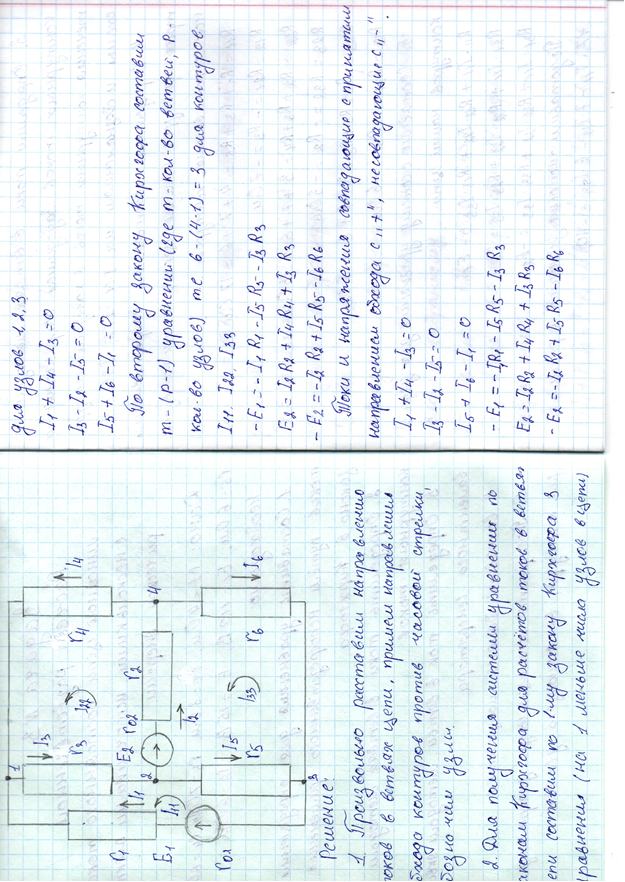 1
I3
r3
I1
r1
I11
E1
r02
2
E2 r02
I2
r2
I22
r4
I4
4
I5
r5
I33
r6
I6
3
Решение:
1. Произвольно расставим направлению
токов в ветвях цепи, примем направления
обхода контуров против часовой стрелки,
обозначем узлы.
2. Для получения системы уравнения по
законам Кирхгофа для расчётов токов в ветвях
цепи составим по 1-му закону Кирхгофа 3
уравнения (на 1 меньше числа узлов в цепи)
для узлов 1,2,3
I1 + I4 - I3 = 0
I3 - I2 - I5 = 0
I5 + I6 - I1 = 0
По второму закону Кирхгофа составим
m-(p-1) уравнений (где m-кол-во ветвей, p-
кол-во узлов) т.е 6-(4-1)=3 для контуров
I11, I22, I33
-E1 = -I1R1 - I5R5 - I3R3
E2 = I2R2 + I4R4 + I3R3
-E2 = -I2R2 + I5R5 - I6R6
Токи и напряжения совпадающие с принятым
направлением обхода с „+", несовпадающие с „-".
I1 + I4 - I3 = 0
I3 - I2 - I5 = 0
I5 + I6 - I1 = 0
-E1 = -I1R1 - I5R5 - I3R3
E2 = I2R2 + I4R4 + I3R3
-E2 = -I2R2 + I5R5 - I6R6